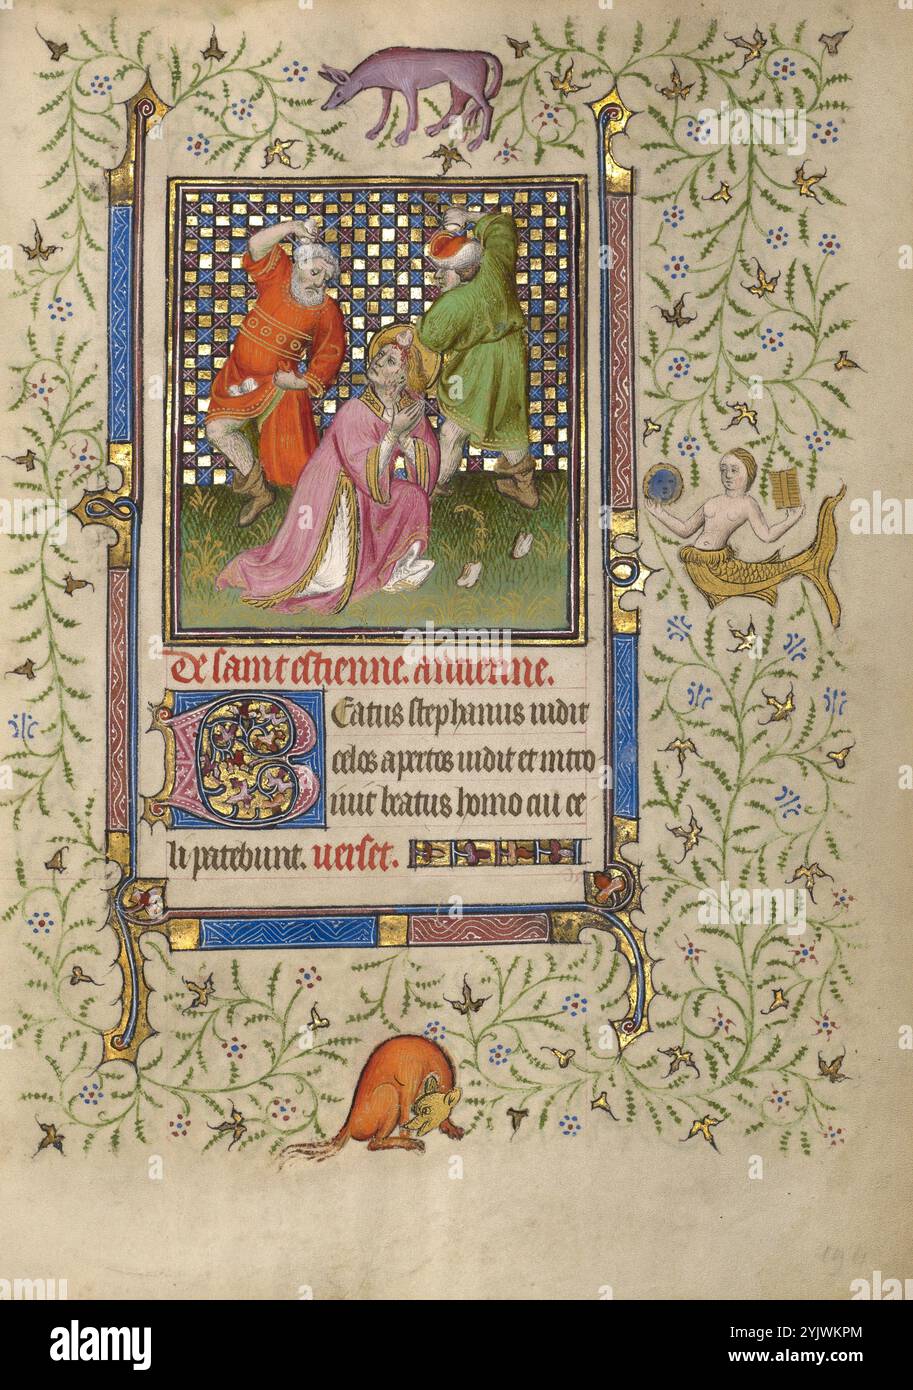 De saint estienne. antienne.
Beatus stephanus uidit
celos apertos uidit et intro
iuit beatus homo cui ce
li patebunt. verset.
194
a
alamy
Image ID: 2YJWKPM
www.alamy.com